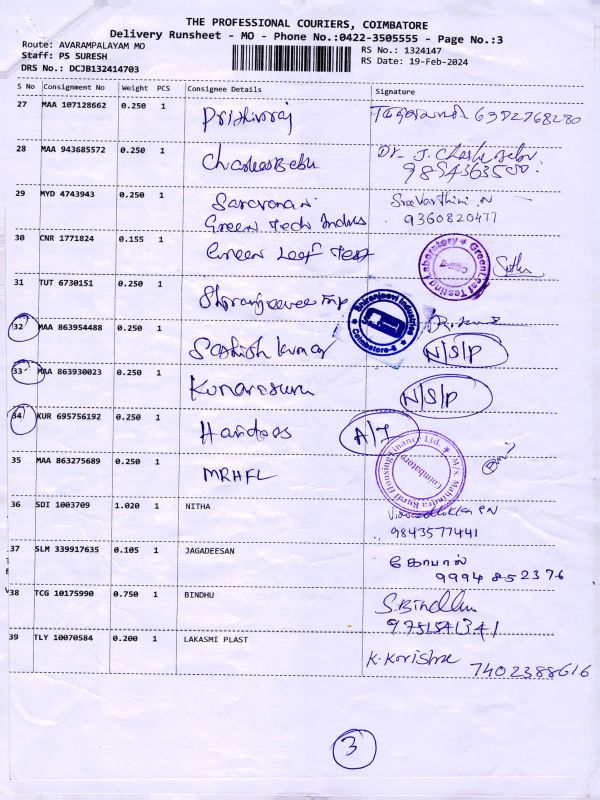 THE PROFESSIONAL COURIERS, COIMBATORE
Delivery Runsheet - MO - Phone No.:0422-3505555 - Page No.:3
Route: AVARAMPALAYAM MO
RS No.: 1324147
Staff: PS SURESH
RS Date: 19-Feb-2024
DRS No.: DCJB132414703
S No Consignment No Weight PCS Consignee Details Signature
27 MAA 107128662 0.250 1 Prithiviraj 6372768280
28 MAA 943685572 0.250 1 CharlesBabu Dr. J. Charles Babu
29 MYD 4743943 0.250 1 Saravanan N
Green Tech Indus 9360820477
30 CNR 1771824 0.155 1 Green Leaf Test
GreenLeaf Testing Laboratory
31 TUT 6730151 0.250 1
Shiranjeevi Industries
Coimbatore-6
32 MAA 863954488 0.250 1 Sathish Kumar N/S/P
33 MAA 863930023 0.250 1 N/S/P
34 KUR 695756192 0.250 1 Haridoss A/T
35 MAA 863275689 0.250 1 MRHFL
M/s. Mahindra Rural Housing Finance Ltd.
Coimbatore
36 SDI 1003709 1.020 1 NITHA
9843577441
37 SLM 339917635 0.105 1 JAGADEESAN கோபால்
9994852376
38 TCG 10175990 0.750 1 BINDHU S.Bindhu
9751541341
39 TLY 10070584 0.200 1 LAKASMI PLAST K. Karishna 7402388616
3